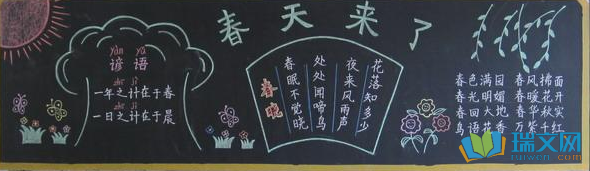 春天来了
yàn yǔ
谚语
一年之计在于春
一日之计在于晨
春晓
春眠不觉晓
处处闻啼鸟
夜来风雨声
花落知多少
春色满园 春风拂面
春光明媚 春暖花开
春回大地 春华秋实
鸟语花香 万紫千红
瑞文网